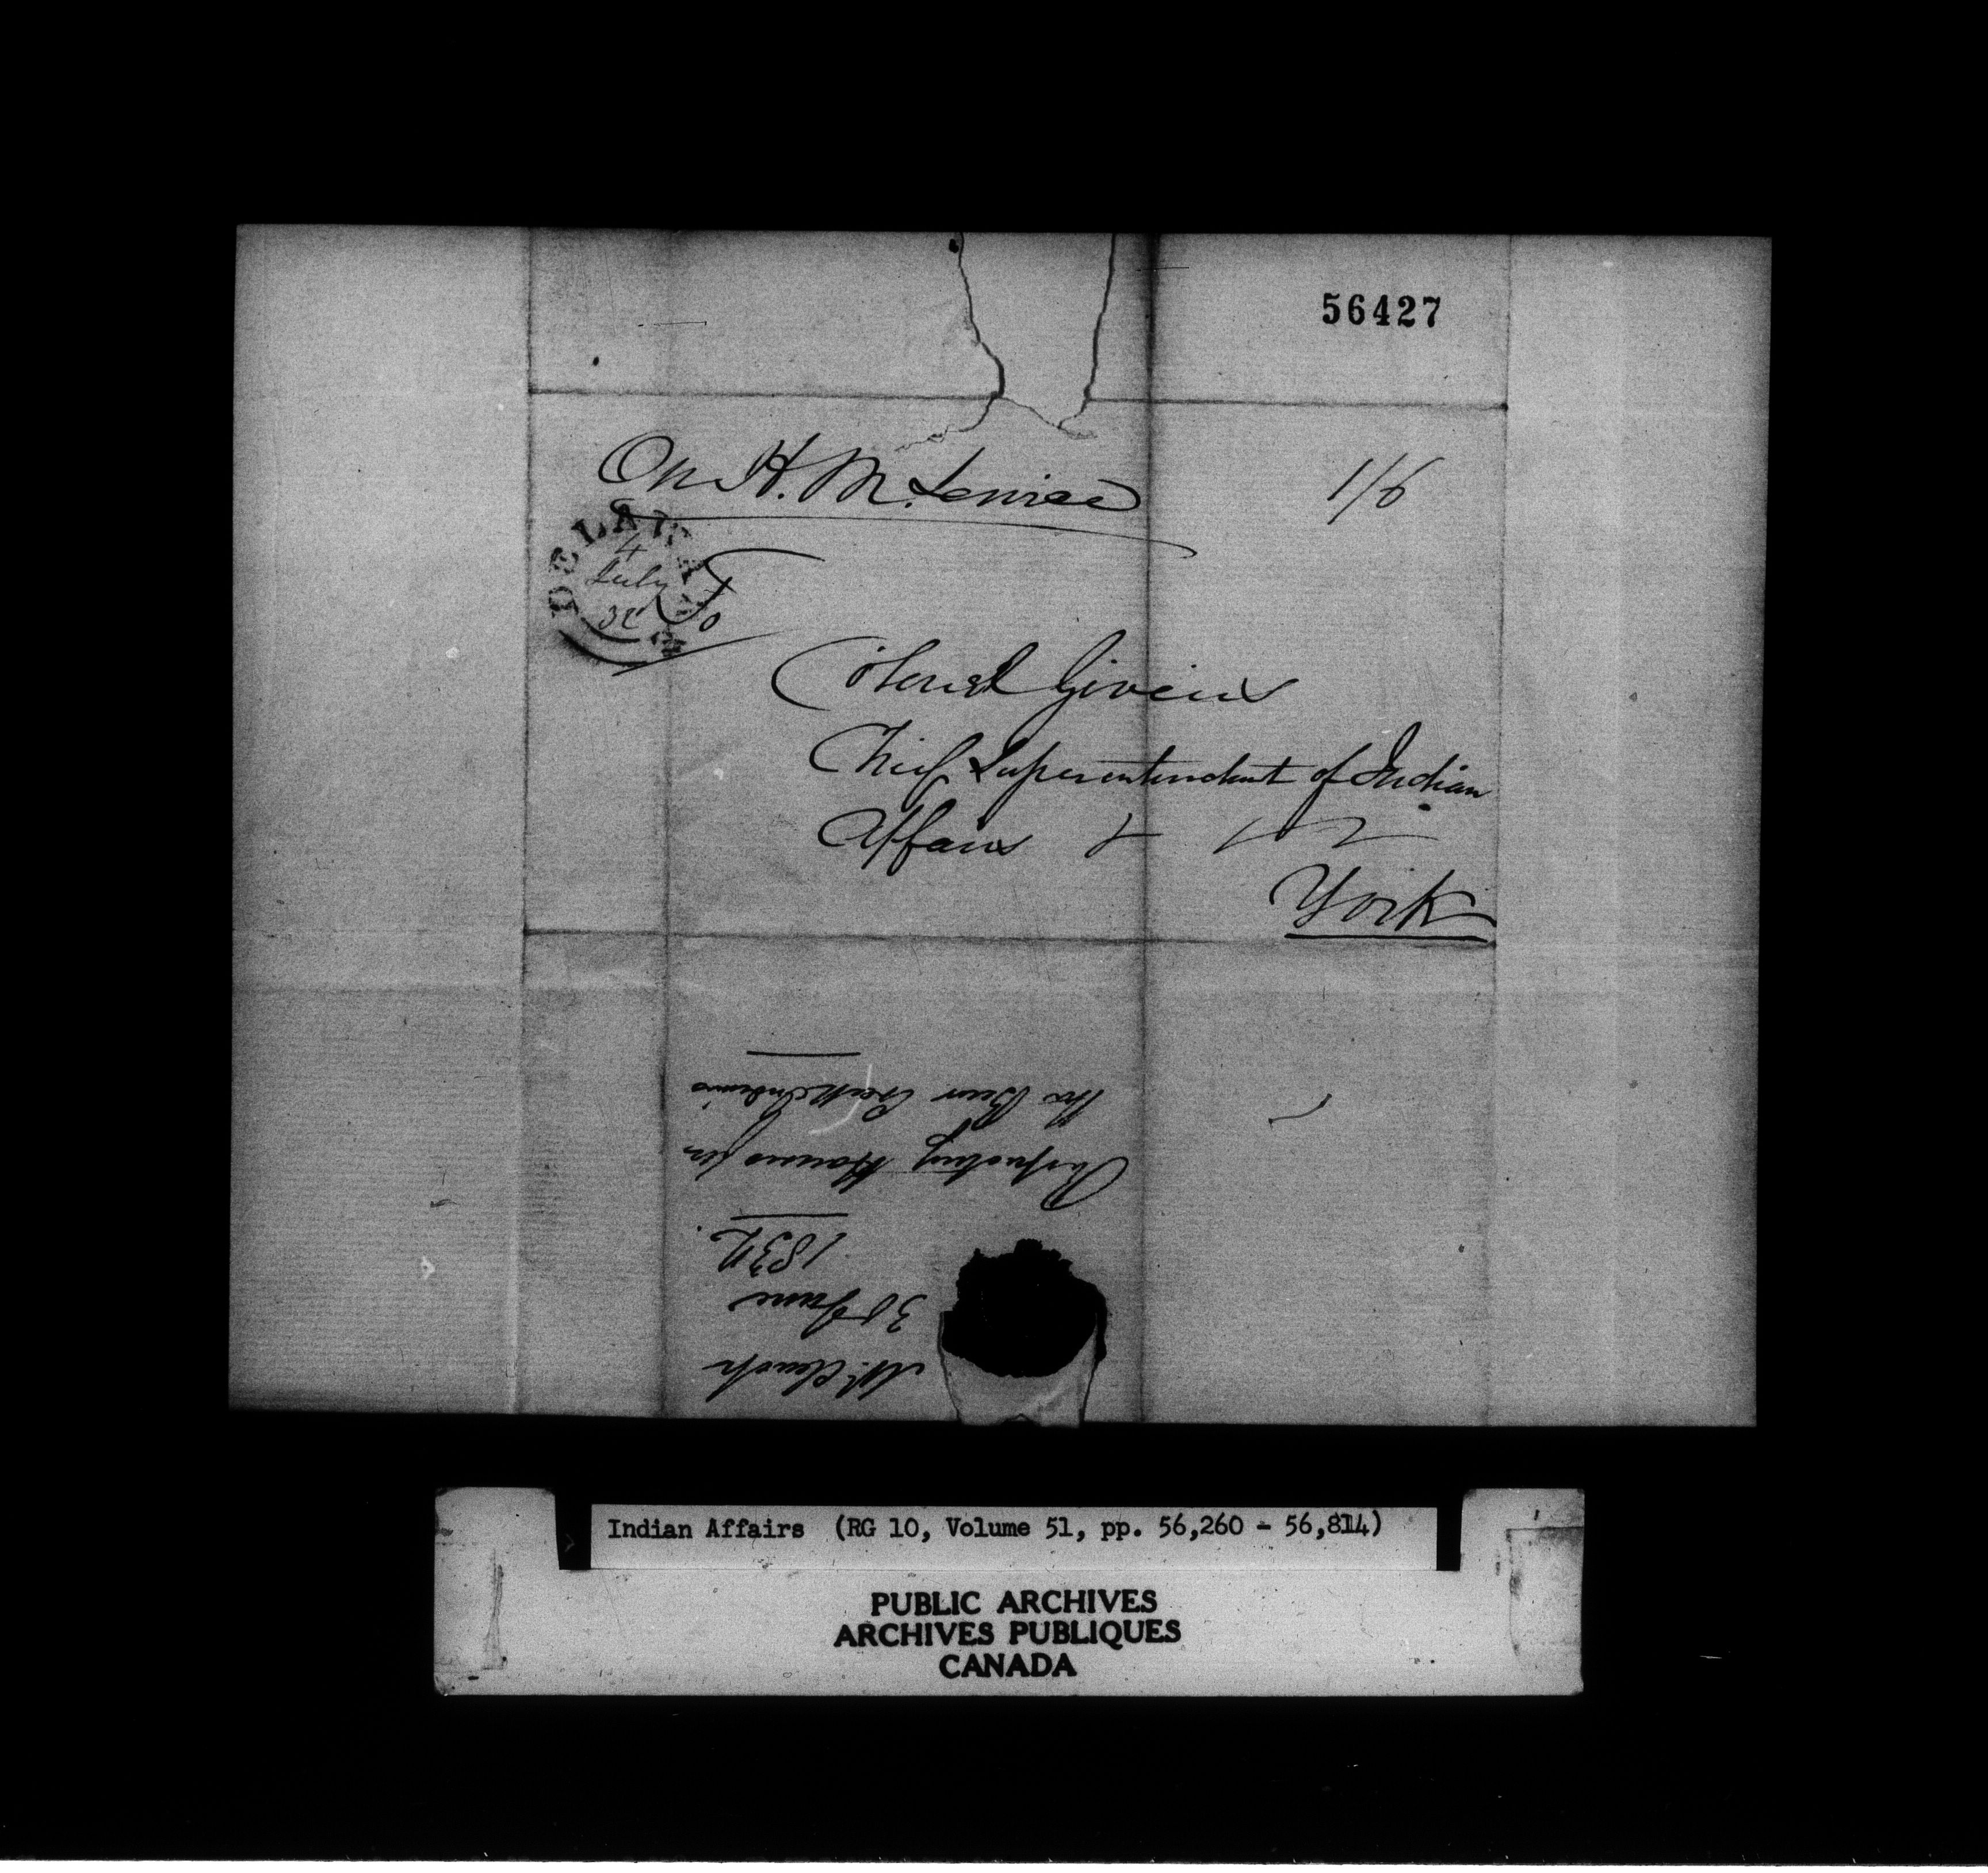 56427
On H. M. Service
1/6
DELAWARE
4
July
32
To
Colonel Givins
Chief Superintendent of Indian
Affairs & &c &c
York
Mr. Clench
30 June
1832.
Respecting Houses for
the Bear Creek Indians
Indian Affairs (RG 10, Volume 51, pp. 56,260 - 56,814)
PUBLIC ARCHIVES
ARCHIVES PUBLIQUES
CANADA